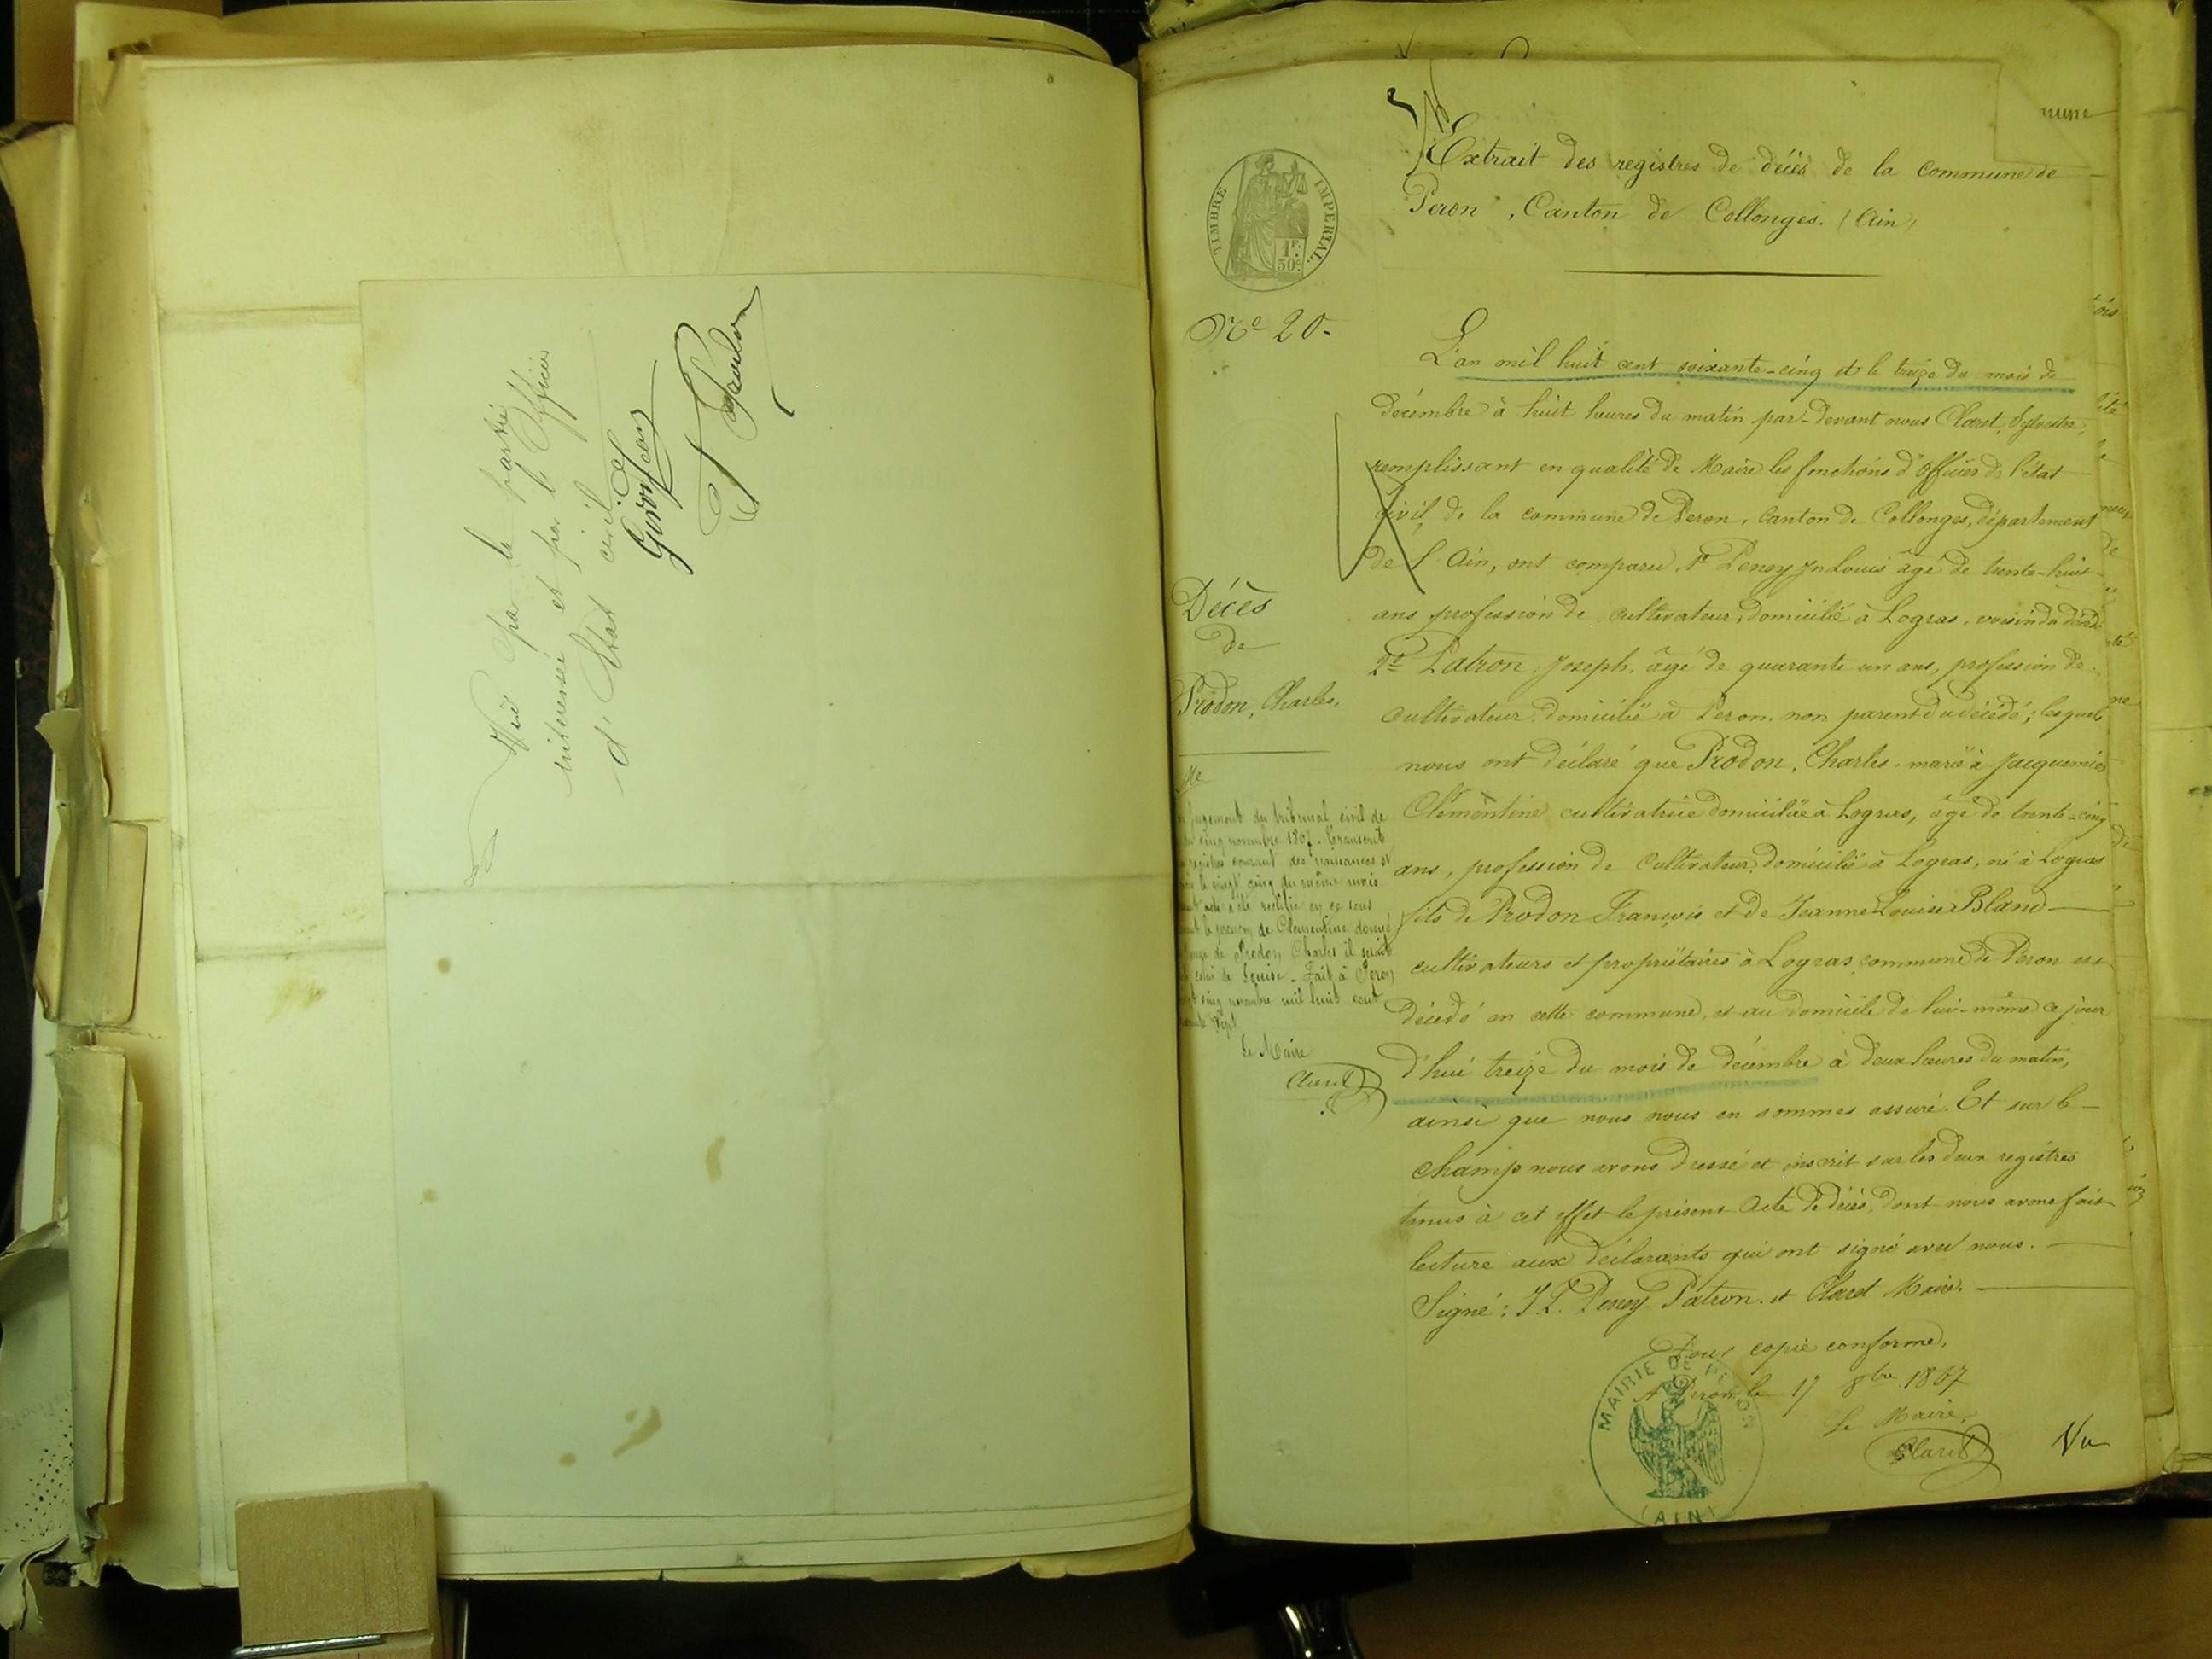 Visé par la partie
intéressée et par l'Officier
d'Etat civil
Girod Jean
nune
Extrait des registres de décès de la commune de
Peron, Canton de Collonges. (Ain)
TIMBRE IMPERIAL
1F.
50c.
No 20.
L'an mil huit cent soixante-cinq et le treize du mois de
décembre à huit heures du matin par-devant nous Claret, Sylvestre,
remplissant en qualité de Maire les fonctions d'Officier de l'état
Civil de la commune de Peron, Canton de Collonges, département
de l'Ain, ont comparu, 1° Peney Jn Louis âgé de trente-huit
ans profession de cultivateur, domicilié à Logras, voisin du décédé
2° Patron, Joseph, âgé de quarante un ans, profession de
cultivateur domicilié à Peron, non parent du décédé; lesquels
nous ont déclaré que Prodon, Charles, marié à Jacquemier
Clémentine cultivatrice domiciliée à Logras, âgé de trente-cinq
ans, profession de cultivateur, domicilié à Logras, né à Logras
fils de Prodon François et de Jeanne Louise Blanc
cultivateurs et propriétaires à Logras commune de Peron est
décédé en cette commune, et au domicile de lui-même ce jour
d'hui treize du mois de décembre à deux heures du matin,
ainsi que nous nous en sommes assuré. Et sur le
champ nous avons dressé et inscrit sur les deux registres
tenus à cet effet le présent Acte de décès, dont nous avons fait
lecture aux déclarants qui ont signé avec nous.
Signé: J.L. Peney Patron. et Claret Maire.
Pour copie conforme,
A Peron le 17 8bre 1867
Le Maire,
Claret
Vu
MAIRIE DE PERON
(AIN)
Décès
de
Prodon, Charles,
jugement du tribunal civil de
cinq novembre 1867. transcrit
registres courant des naissances et
le vingt cinq du même mois
acte a été rectifié en ce sens
le prénom de Clementine donné
de Prodon Charles il serait
celui de Louise. Fait à Peron
cinq novembre mil huit cent
sept
Le Maire
Claret